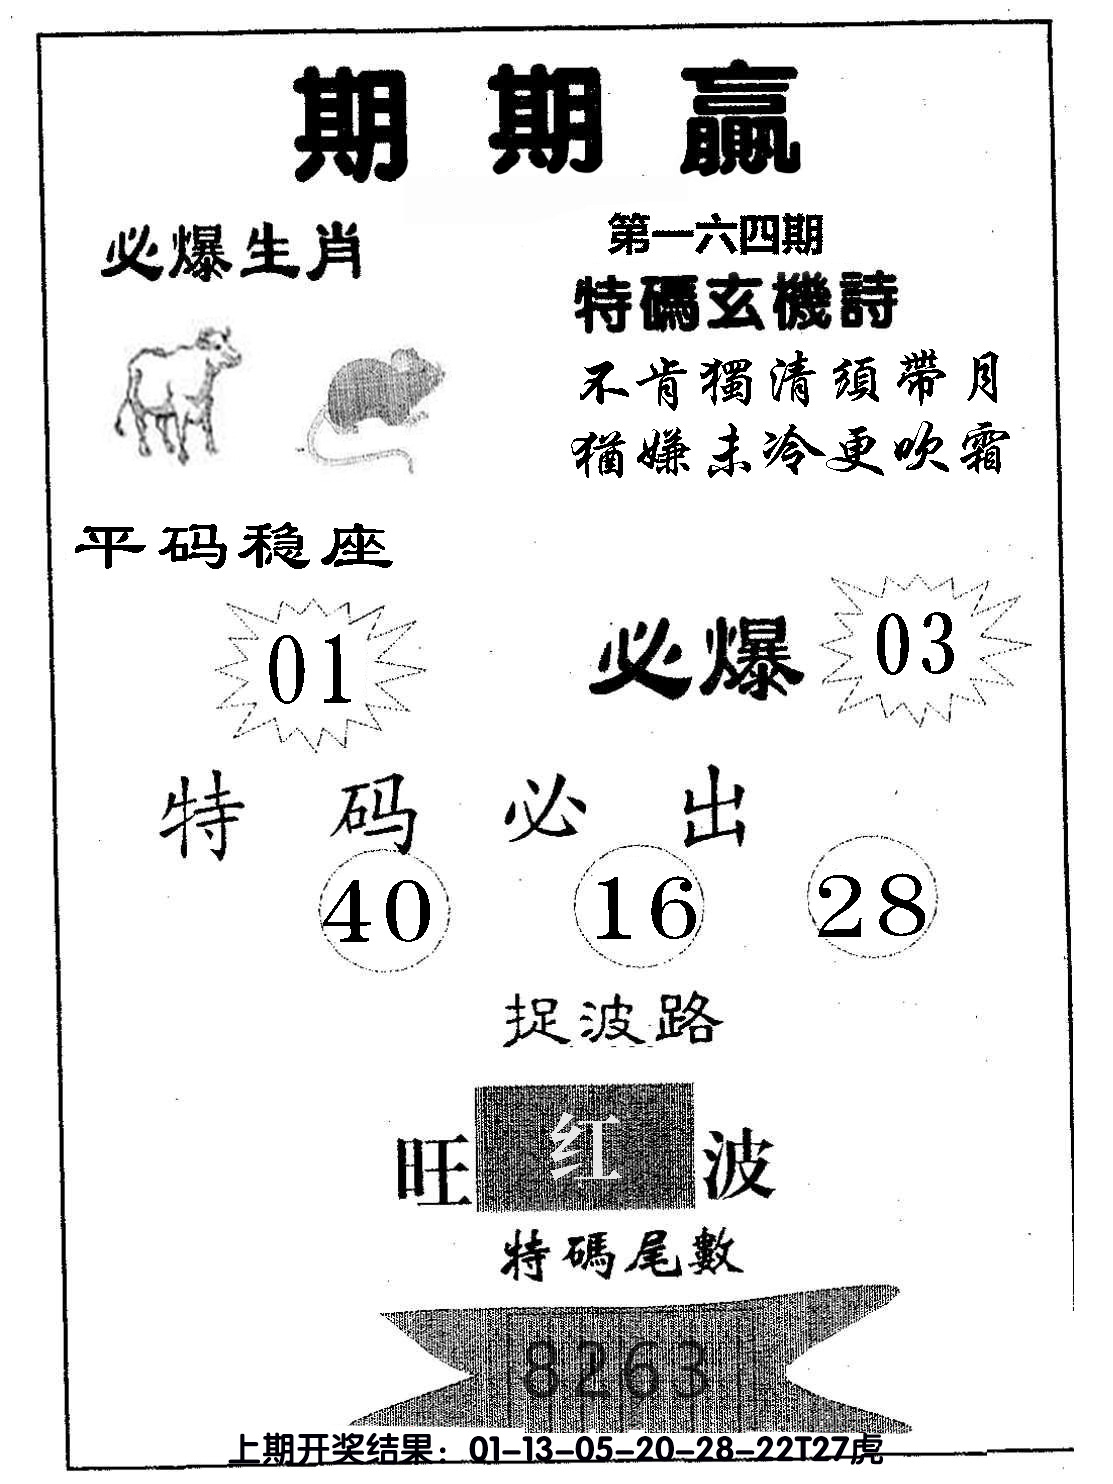 期期贏
必爆生肖
第一六四期
特碼玄機詩
不肯獨清須帶月
猶嫌未冷更吹霜
平码稳座
01
必爆 03
特码必出
40 16 28
捉波路
旺 红 波
特碼尾數
8263
上期开奖结果：01-13-05-20-28-22T27虎